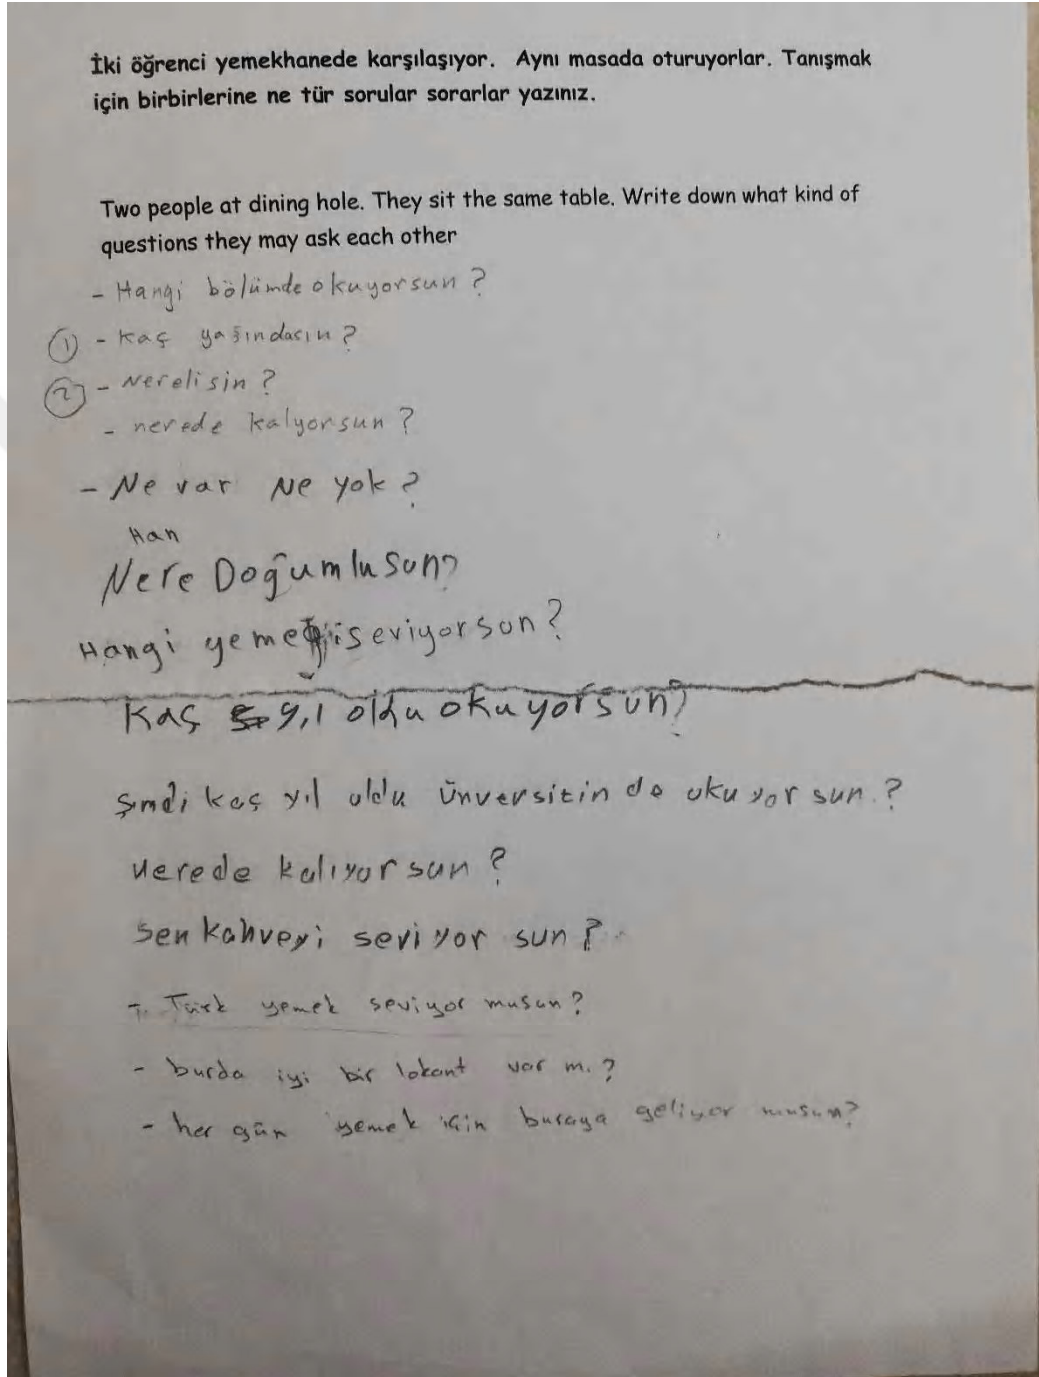 İki öğrenci yemekhanede karşılaşıyor. Aynı masada oturuyorlar. Tanışmak
için birbirlerine ne tür sorular sorarlar yazınız.
Two people at dining hole. They sit the same table. Write down what kind of
questions they may ask each other
- Hangi bölümde okuyorsun ?
① - kaç yaşındasın ?
② - Nerelisin ?
- nerede kalyorsun ?
- Ne var Ne yok ?
Han
Nere Doğumlusun?
Hangi yemeği seviyorsun ?
Kaç yıl oldu okuyorsun?
Şimdi kaç yıl oldu Ünversitinde okuyorsun ?
nerede kalıyorsun ?
Sen kahveyi seviyor sun ?
- Türk yemek seviyor musun ?
- burda iyi bir lokant var mı ?
- her gün yemek için buraya geliyor musun?